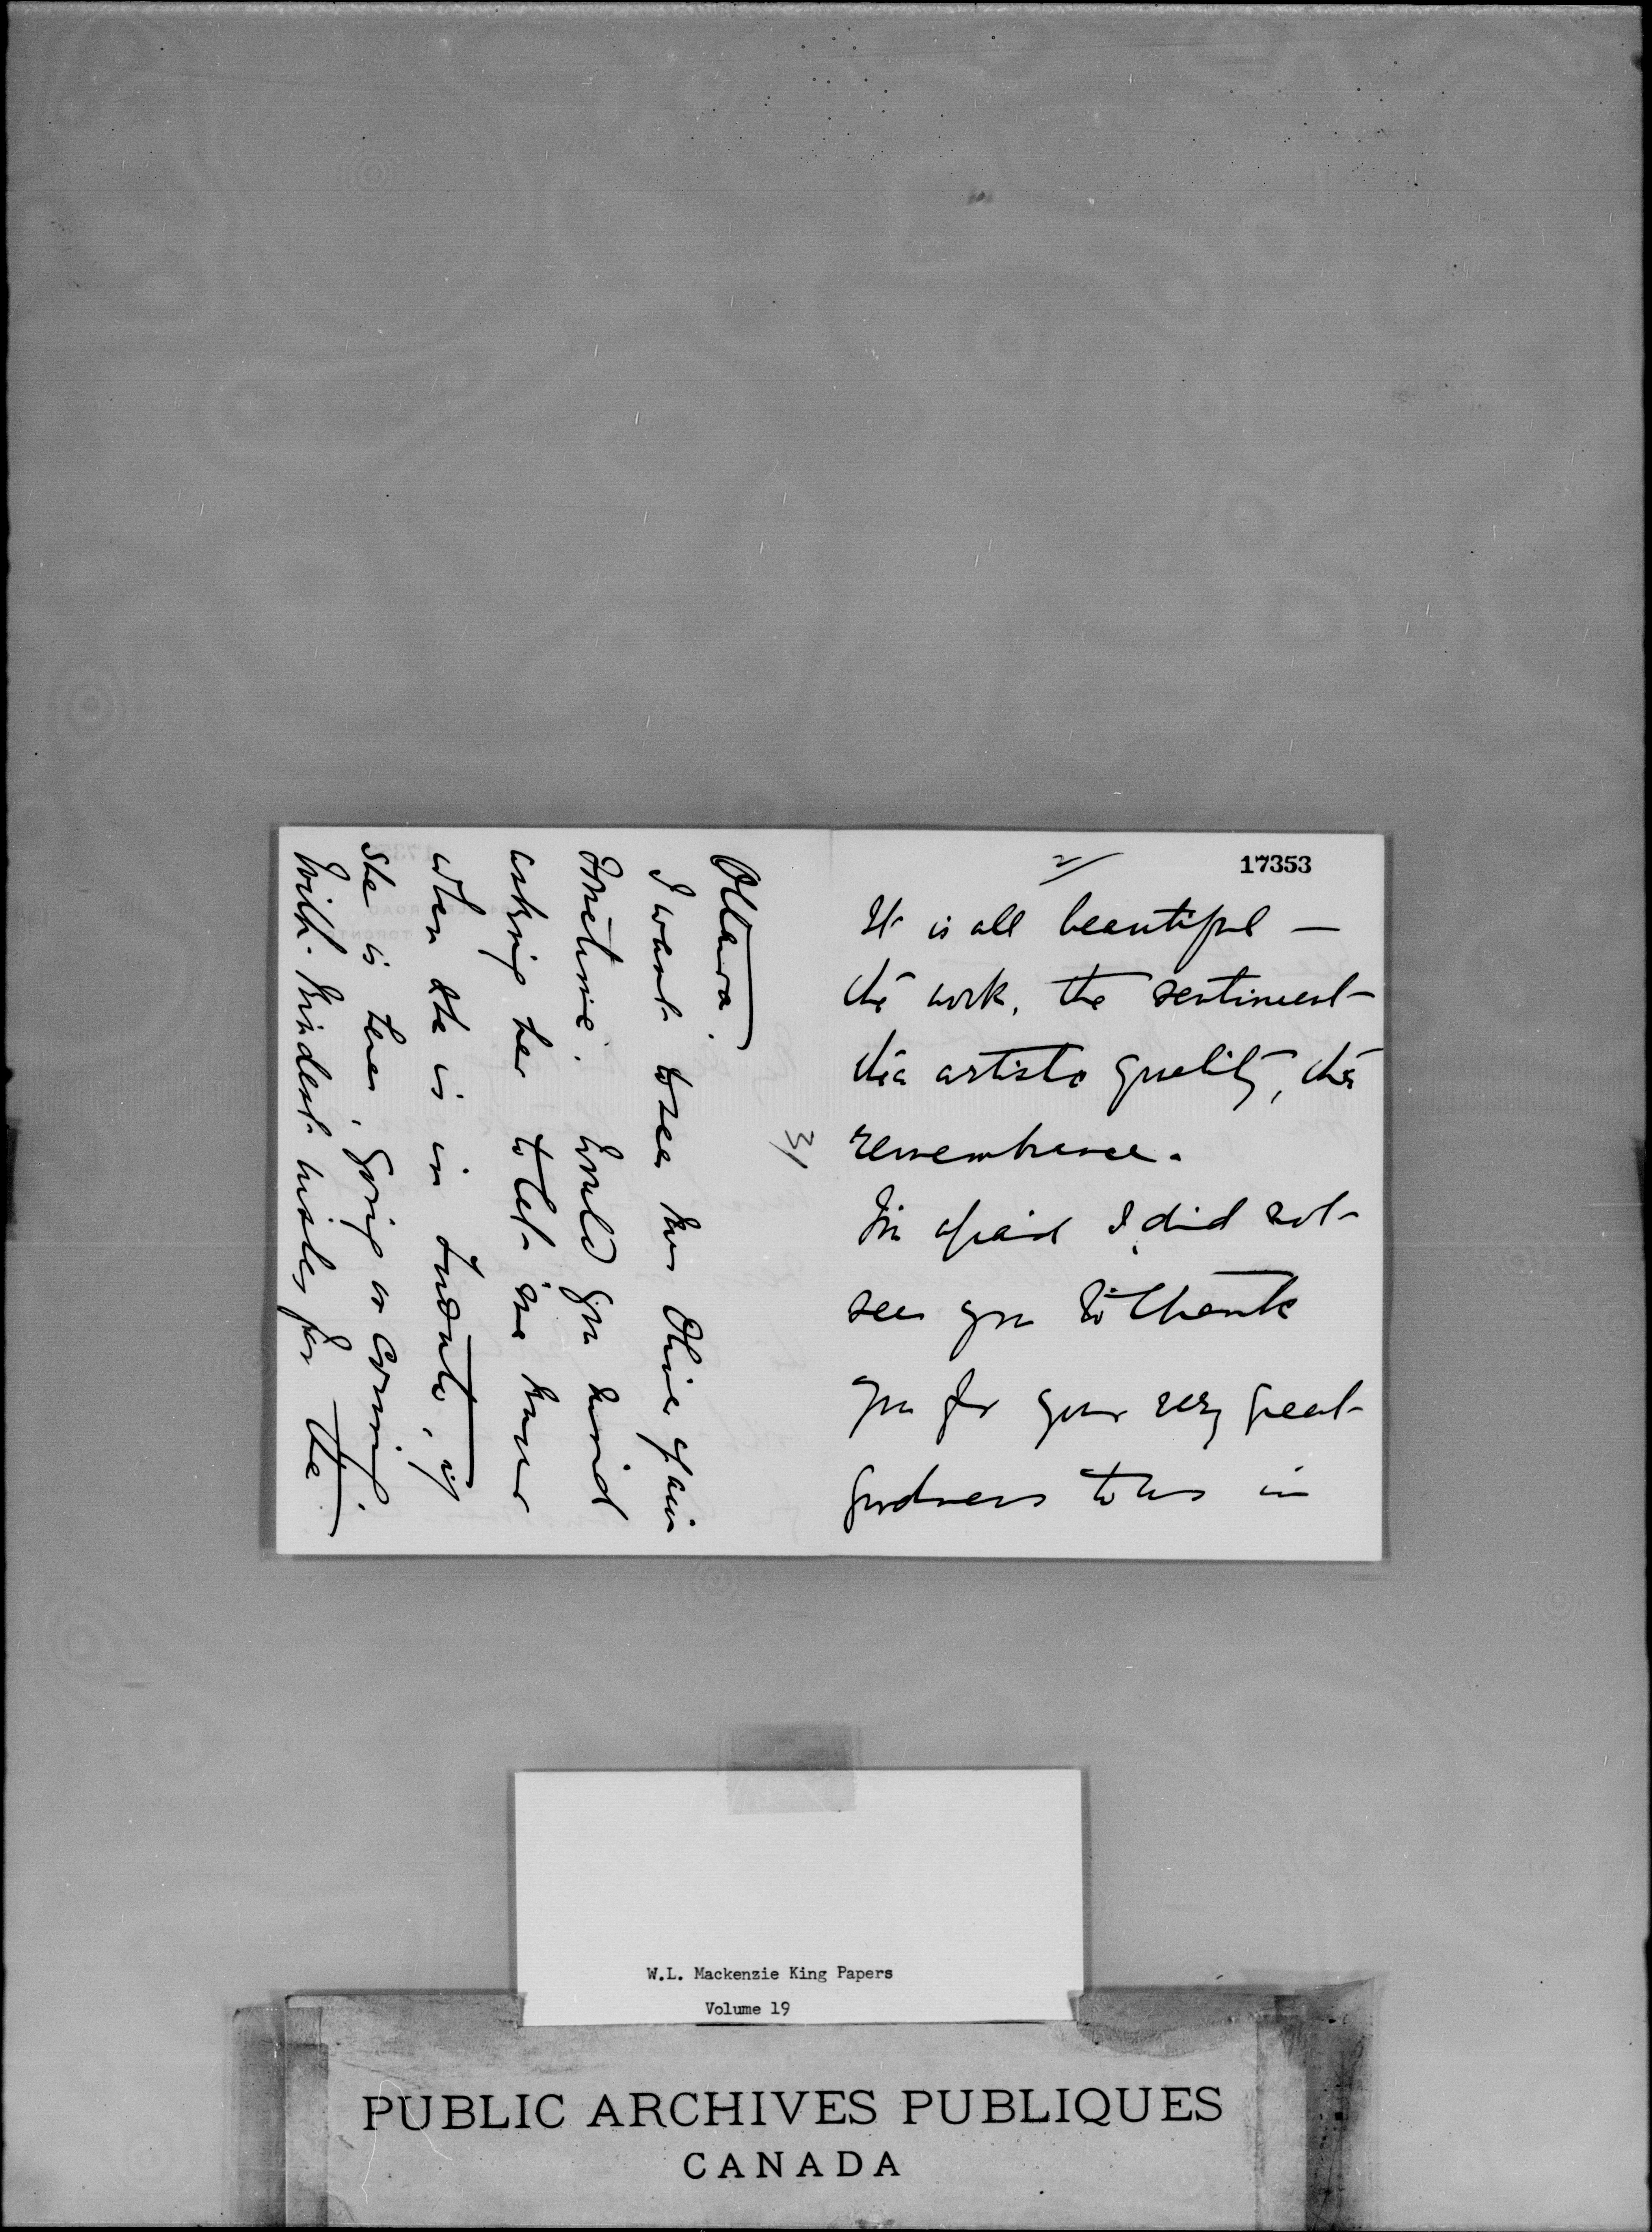 2/
17353
It is all beautiful —
the work, the sentiment
the artistic quality, the
remembrance.
I'm afraid I did not
see you to thank
you for your very great
goodness to us in
3/
Ottawa.
I want to see her Olive again
sometime. Would you mind
asking her to let me know
when she is in Toronto, if
she is ever going or coming.
With kindest wishes for the
W.L. Mackenzie King Papers
Volume 19
PUBLIC ARCHIVES PUBLIQUES
CANADA